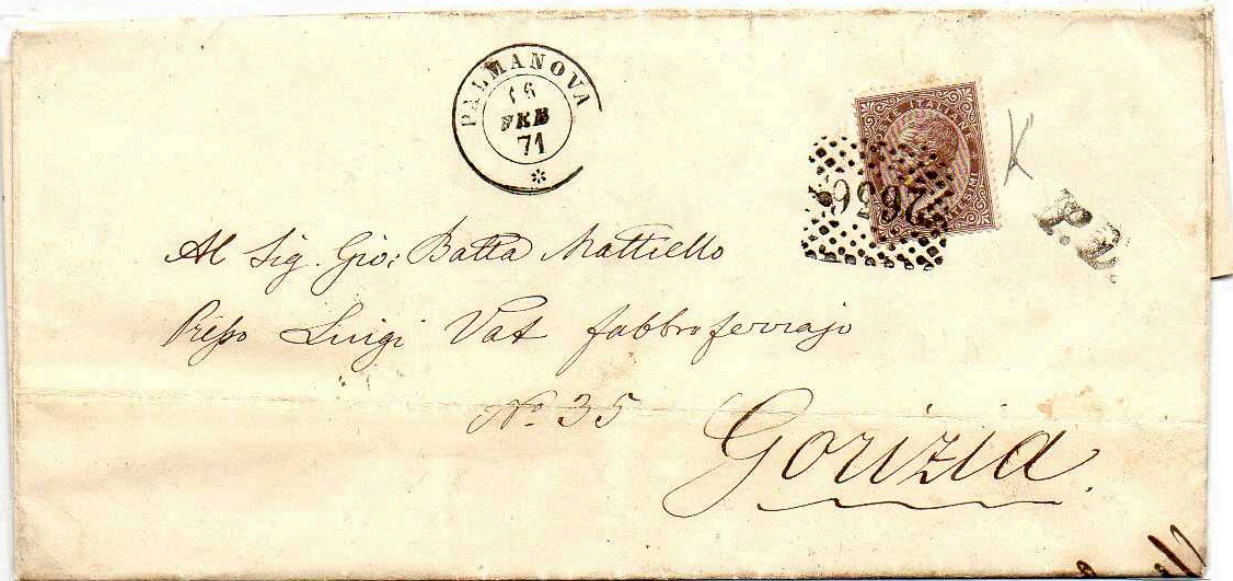 PALMANOVA
16
FEB
71
POSTE ITALIANE
CENTESIMI
2656
P.D.
Al Sig. Gio: Batta Mattiello
Presso Luigi Vat fabbro ferrajo
Nº 35
Gorizia.